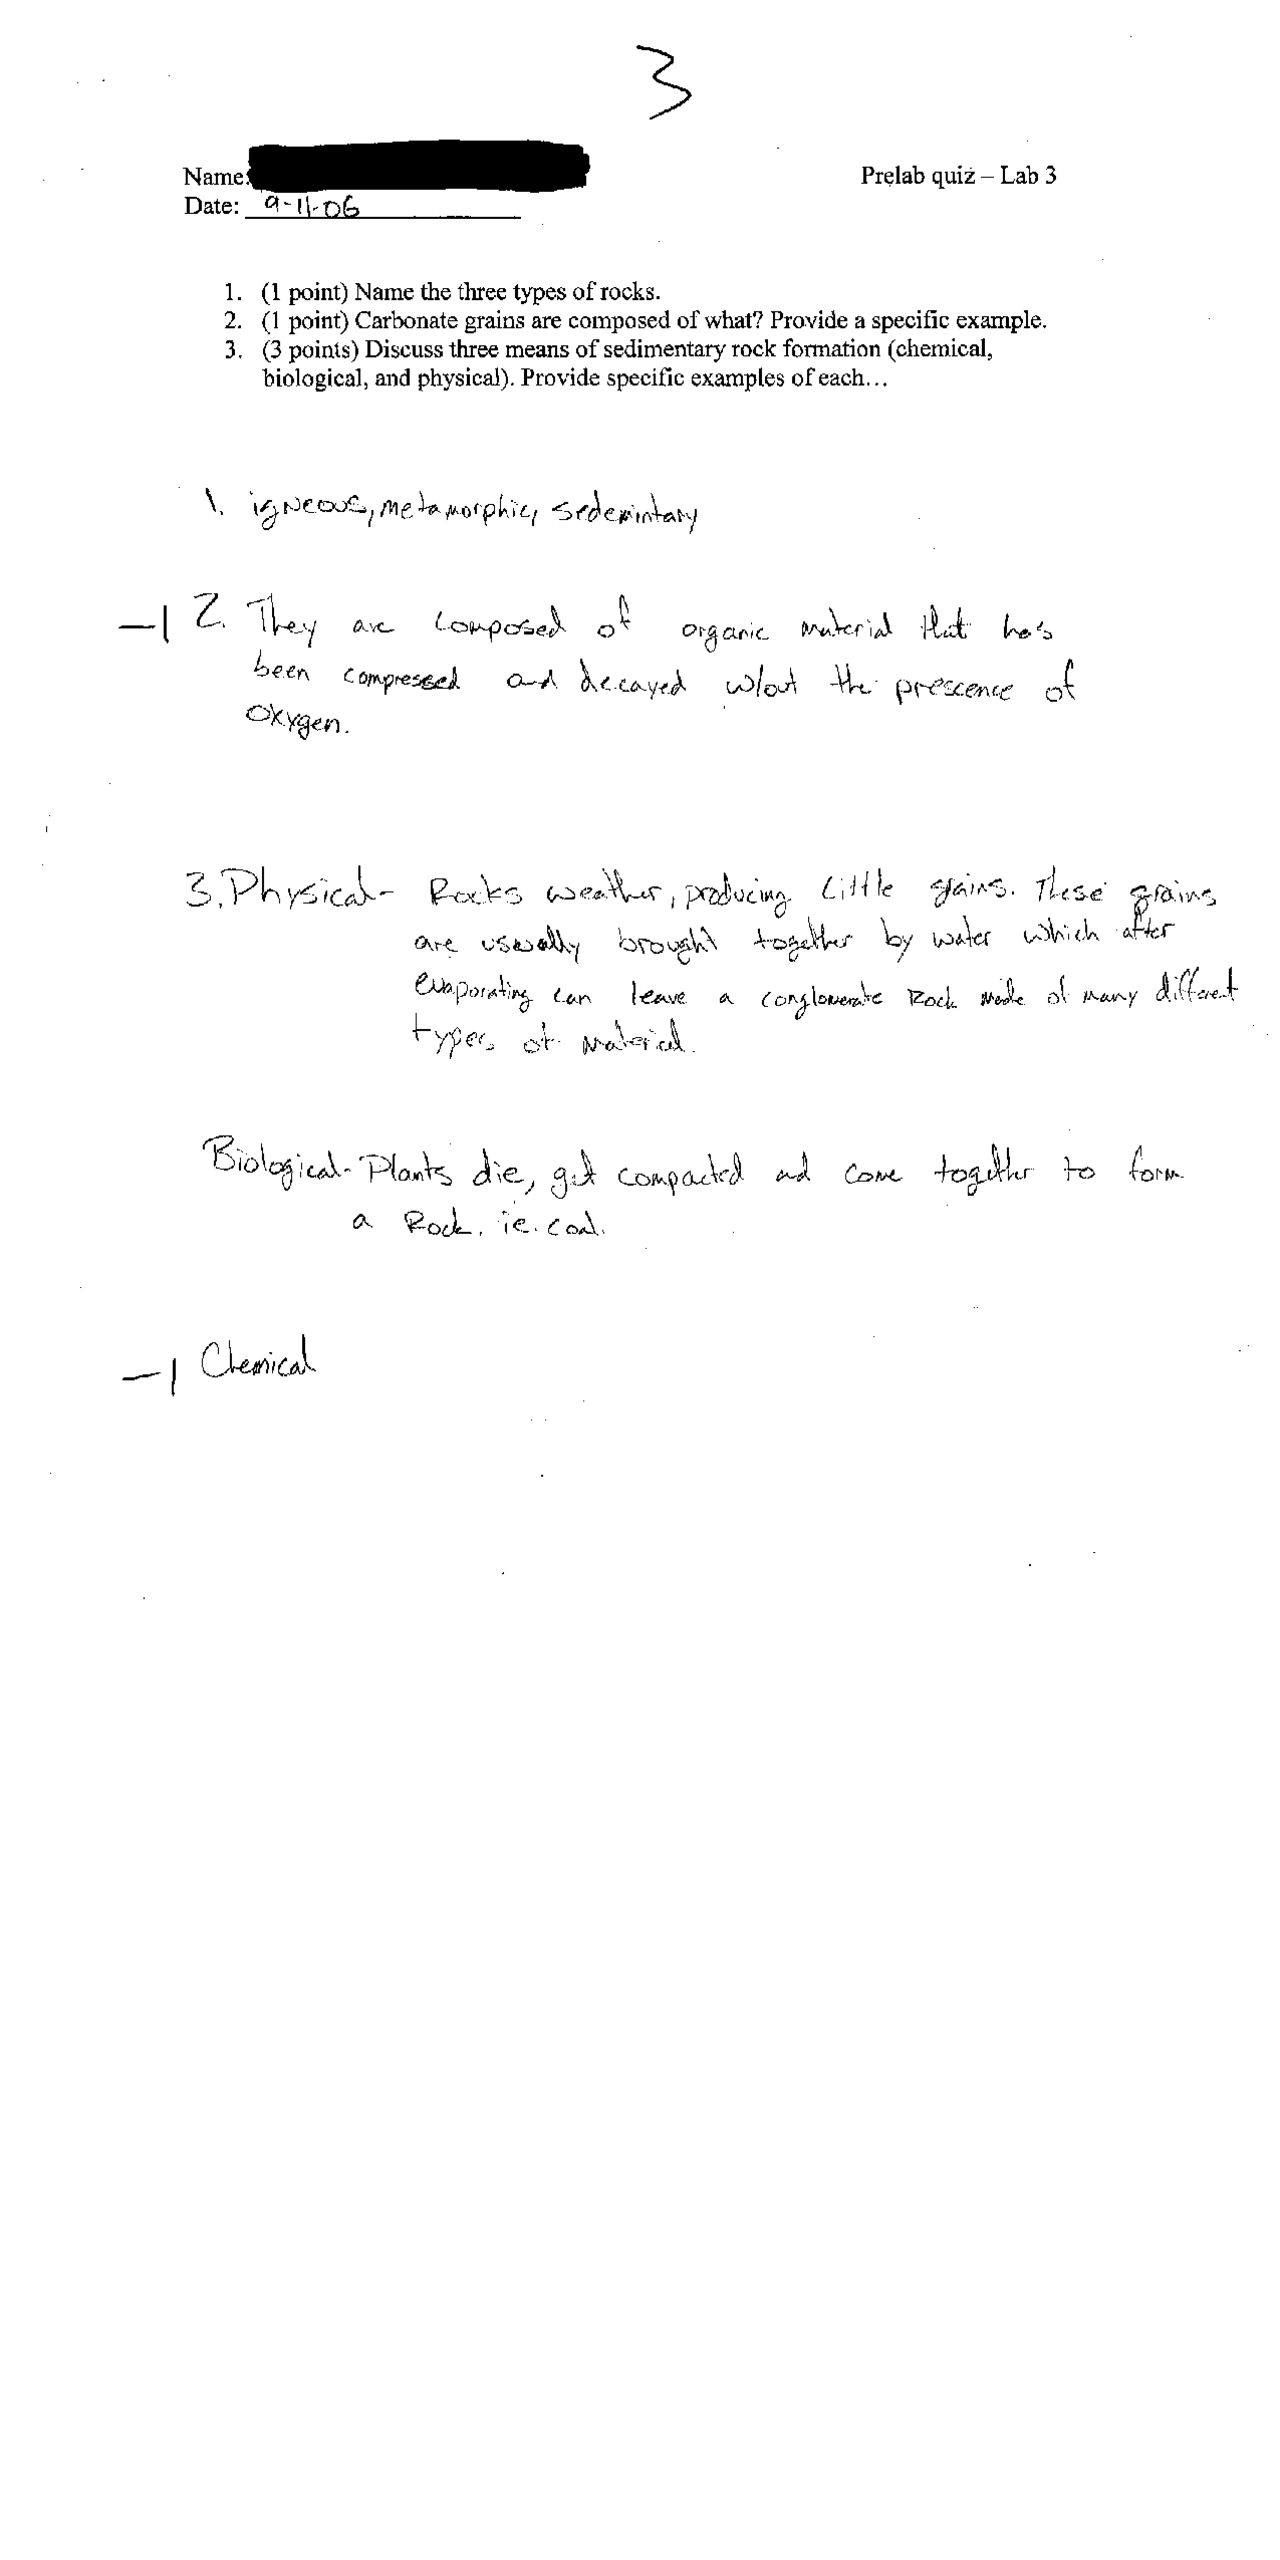 3
Name:
Prelab quiz – Lab 3
Date: 9-11-06
1. (1 point) Name the three types of rocks.
2. (1 point) Carbonate grains are composed of what? Provide a specific example.
3. (3 points) Discuss three means of sedimentary rock formation (chemical,
biological, and physical). Provide specific examples of each…
1. igneous, metamorphic, sedemintary
-1 2. They are composed of organic material that has
been compressed and decayed w/out the prescence of
oxygen.
3. Physical- Rocks weather, producing little grains. These grains
are usually brought together by water which after
evaporating can leave a conglomerate Rock made of many different
types of material.
Biological- Plants die, get compacted and come together to form
a Rock. ie. coal.
-1 Chemical